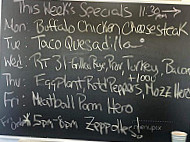 This Week's Specials 11:30am
Mon: Buffalo Chicken Cheesesteak
Tue: Taco Quesadilla
Wed: RT 31- Grilled Rye, Pan Turkey, Bacon
+ 1000 i
Thu: Eggplant, Rstd Peppers, Mozz Hero
Fri: Meatball Parm Hero
5pm-8pm Zeppoles!